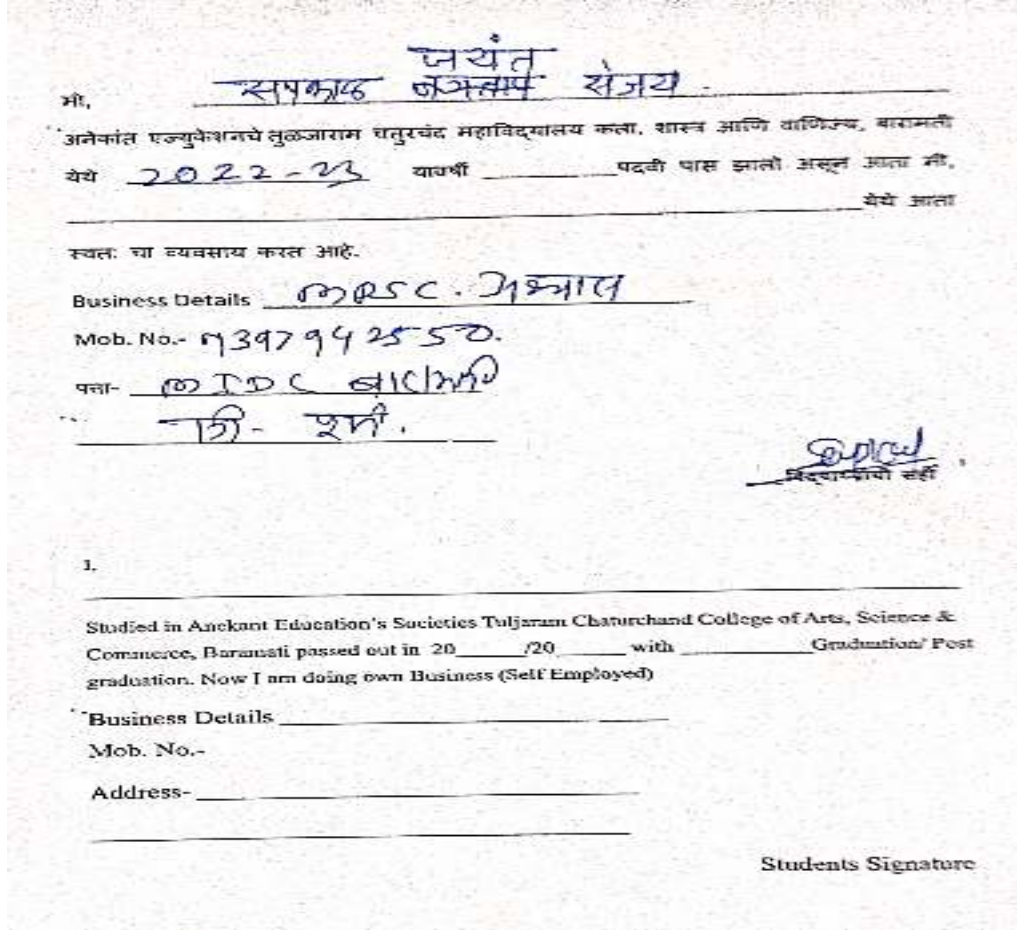 जयंत
मी, सपकाळ जगताप संजय
अनेकांत एज्युकेशनचे तुळजाराम चतुरचंद महाविद्यालय कला, शास्त्र आणि वाणिज्य, बारामती
येथे 2022-23 यावर्षी पदवी पास झालो असून आता मी,
येथे आता
स्वतः चा व्यवसाय करत आहे.
Business Details
Mob. No.- 9397942550.
पत्ता- MIDC बारामती
विद्यार्थ्याची सही
I,
Studied in Anekant Education's Societies Tuljaram Chaturchand College of Arts, Science &
Commerce, Baramati passed out in 20______/20______ with __________Graduation/ Post
graduation. Now I am doing own Business (Self Employed)
Business Details
Mob. No.-
Address-
Students Signature